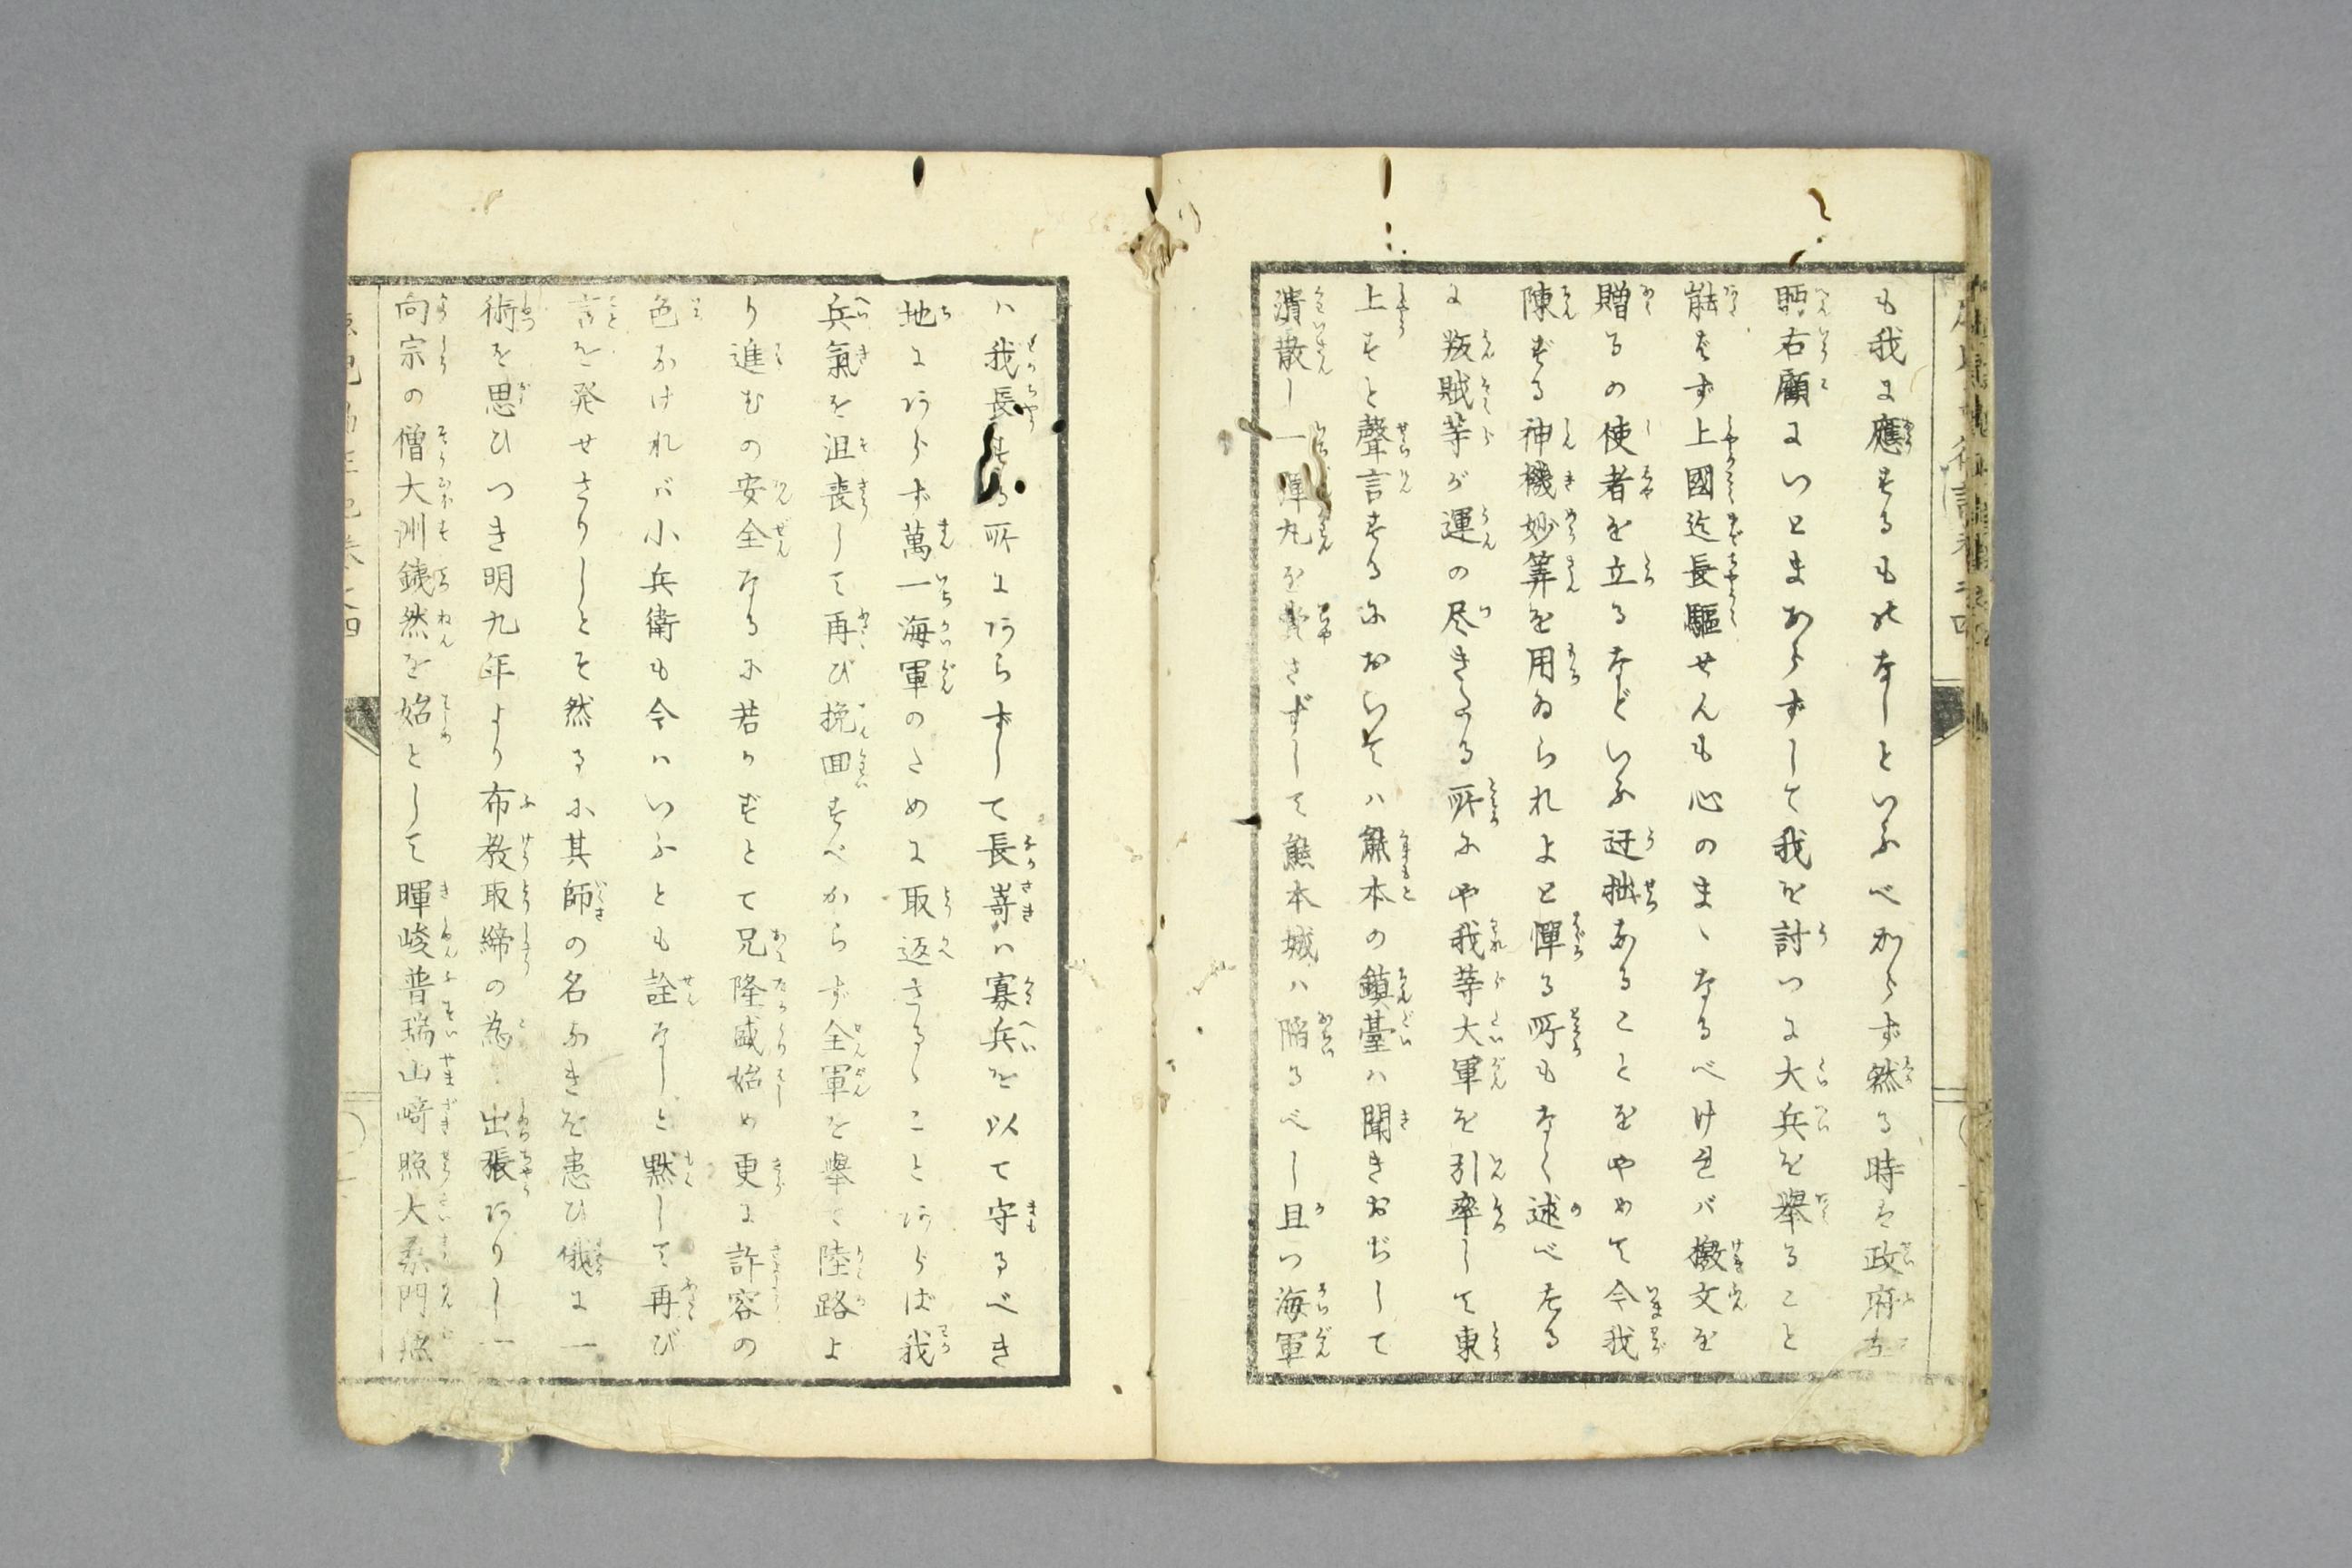 も我に應ずるものなしといふべからず然る時は政府左
眄右顧にいとまあらずして我を討つに大兵を擧ること
能はず上國迄長驅せんも心のまゝなるべければ檄文を
贈るの使者を立るなどいふ迂拙あることをやめて今我
陳ずる神機妙算を用ゐられよと憚る所もなく述べたる
に叛賊等が運の尽きたる所にや我等大軍を引率して東
上すと聲言するにおいては熊本の鎮臺は聞きおぢして
潰散し一弾丸を費さずして熊本城は陥るべし且つ海軍
は我長ずる所にあらずして長嵜は寡兵を以て守るべき
地にあらず萬一海軍のために取返さるゝことあらば我
兵氣を沮喪して再び挽回すべからず全軍を擧て陸路よ
り進むの安全なるに若かずとて兄隆盛始め更に許容の
色なければ小兵衛も今はいふとも詮なしと黙して再び
言を発せざりしとぞ然るに其師の名なきを患ひ俄に一
術を思ひつき明九年より布教取締の為出張ありし一
向宗の僧大洲鉄然を始として暉峻普瑞山﨑照大桑門